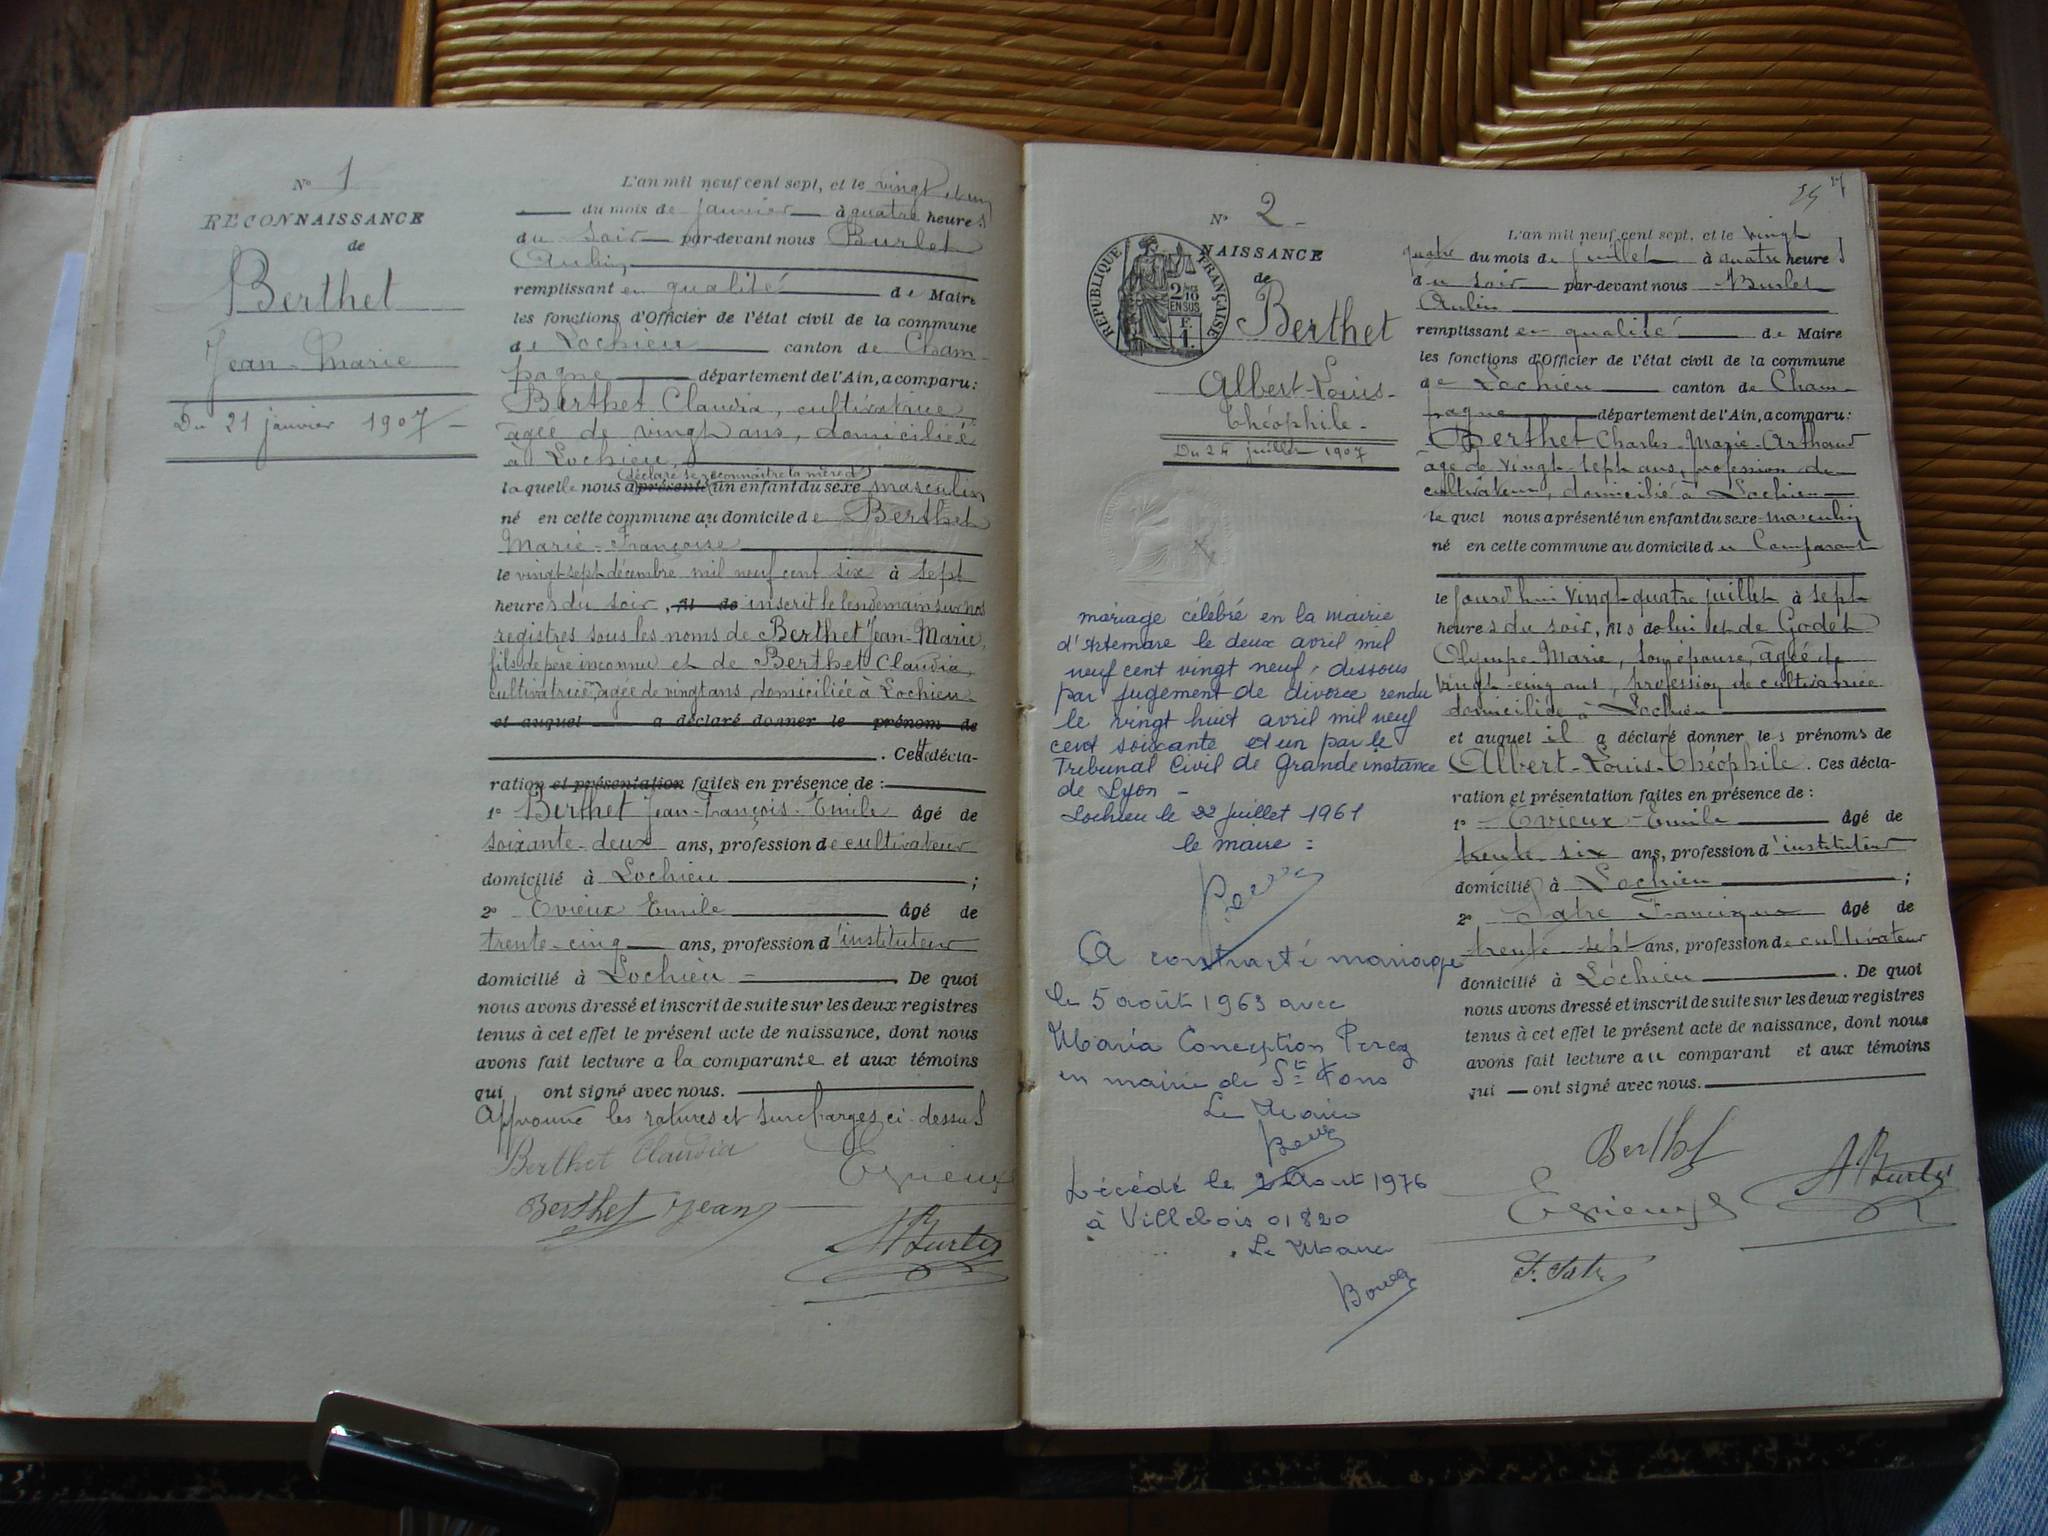 N° 1
RECONNAISSANCE
de
Berthet
Jean-Marie
Du 21 janvier 1907
L'an mil neuf cent sept, et le vingt et un
du mois de janvier à quatre heures
du soir par-devant nous Burlet
Aubin,
remplissant en qualité de Maire
les fonctions d'Officier de l'état civil de la commune
de Lochieu canton de Cham-
pagne département de l'Ain, a comparu:
Berthet Claudia, cultivatrice
agée de vingt ans, domiciliée
à Lochieu,
(déclaré se reconnaître la mère d')
laquelle nous a présenté un enfant du sexe masculin
né en cette commune au domicile de Berthet
Marie-Françoise
le vingt sept décembre mil neuf cent six à sept
heures du soir, fils de inscrit le lendemain sur nos
registres sous les noms de Berthet Jean-Marie,
fils de père inconnu et de Berthet Claudia,
cultivatrice, agée de vingt ans, domiciliée à Lochieu
et auquel a déclaré donner le prénom de
. Cette décla-
ration et présentation faites en présence de :
1° Berthet Jean-François-Emile âgé de
soixante-deux ans, profession de cultivateur
domicilié à Lochieu ;
2° Evieux Emile âgé de
trente-cinq ans, profession d'instituteur
domicilié à Lochieu . De quoi
nous avons dressé et inscrit de suite sur les deux registres
tenus à cet effet le présent acte de naissance, dont nous
avons fait lecture a la comparante et aux témoins
qui ont signé avec nous.
Approuvé les ratures et surcharges ci-dessus
Berthet Claudia
Evieux
Berthet Jean
A Burlet
27
N° 2
NAISSANCE
de
RÉPUBLIQUE FRANÇAISE
2/10
EN SUS
Berthet
Albert-Louis-
Théophile-
Du 24 juillet 1907
mariage célébré en la mairie
d'Artemare le deux avril mil
neuf cent vingt neuf, dissous
par jugement de divorce rendu
le vingt huit avril mil neuf
cent soixante et un par le
Tribunal Civil de Grande instance
de Lyon -
Lochieu le 22 juillet 1961
le maire :
A contracté mariage
le 5 août 1963 avec
Maria Conception Perez
en mairie de St Fons
Le Maire
Décédé le 2 Aout 1976
à Villebois 01820
Le Maire
L'an mil neuf cent sept, et le vingt
quatre du mois de juillet à quatre heures
du soir par-devant nous Burlet
Aubin
remplissant en qualité de Maire
les fonctions d'Officier de l'état civil de la commune
de Lochieu canton de Cham-
pagne département de l'Ain, a comparu:
Berthet Charles-Marie-Arthaud
agé de vingt-sept ans, profession de
cultivateur, domicilié à Lochieu
lequel nous a présenté un enfant du sexe masculin
né en cette commune au domicile du Comparant
le jourd'hui vingt-quatre juillet à sept
heures du soir, fils de lui et de Godet
Olympe-Marie, son épouse, agée de
vingt-cinq ans, profession de cultivatrice
domiciliée à Lochieu
et auquel il a déclaré donner les prénoms de
Albert-Louis-Théophile. Ces décla-
ration et présentation faites en présence de :
1° Evieux Emile âgé de
trente six ans, profession d'instituteur
domicilié à Lochieu ;
2° Satre Francisque âgé de
trente sept ans, profession de cultivateur
domicilié à Lochieu . De quoi
nous avons dressé et inscrit de suite sur les deux registres
tenus à cet effet le présent acte de naissance, dont nous
avons fait lecture au comparant et aux témoins
qui ont signé avec nous.
Berthet
Evieux
A Burlet
F. Satre